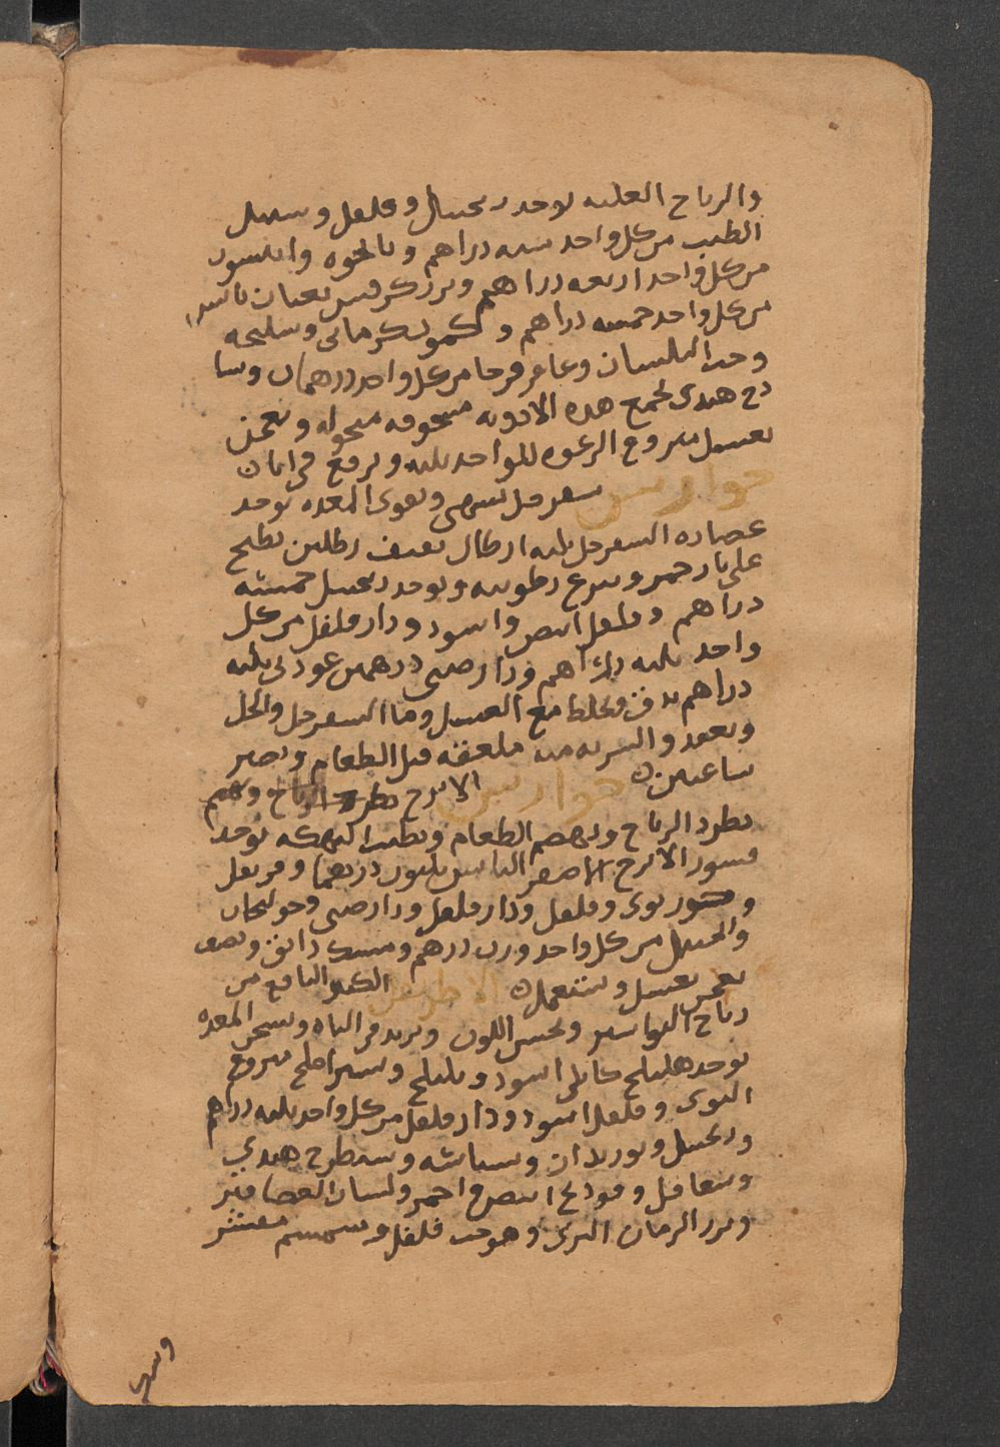 والرياح الغليظه يوخذ زنجبيل وفلفل وسنبل
الطيب من كل واحد سته دراهم ونانخوه وانيسون
من كل واحد اربعه دراهم وبزر كرفس
من كل واحد خمسه دراهم وكمون كرماني وسليخه
وحب البلسان وعاقرقرحا من كل واحد درهمان وسا
دج هندي تجمع هذه الادويه مسحوقه منخوله وتعجن
بعسل منزوع الرغوه للواحد ثلثه ويرفع في انا
جوارشن سفرجل يشهي ويقوي المعده يوخذ
عصاره السفرجل ثلثه ارطال نصف رطلين يطبخ
على نار جمر وينزع رغوته ويوخذ زنجبيل خمسه
دراهم وفلفل ابيض واسود ودار فلفل من كل
واحد ثلثه دراهم ودارصيني درهمين عود ني ثلثه
دراهم يدق ويخلط مع العسل وما السفرجل والخل
ويعقد والشربه منه ملعقه قبل الطعام ويصبر
ساعتين جوارشن الاترج يطرد الرياح ويهضم
يطرد الرياح ويهضم الطعام ويطيب النكهه يوخذ
قشور الاترج الاصفر اليابس ثلثون درهما وقرنفل
وجوزبوى وفلفل ودار فلفل ودارصيني وخولنجان
وزنجبيل من كل واحد وزن درهم ومسك دانق ونصف
يعجن بعسل ويستعمل الاطريفل الكبير النافع من
رياح البواسير ويحسن اللون ويزيد في الباه ويسخن المعده
يوخذ هليلج كابلي اسود وبليلج وشير املج منزوع
النوى وفلفل اسود ودار فلفل من كل واحد ثلثه دراهم
وزنجبيل وبوزيدان وبسباسه وشيطرج هندي
وشقاقل وتودرنج ابيض واحمر ولسان العصافير
وبزر الرمان البري وهو حب فلفل وسمسم مقشر